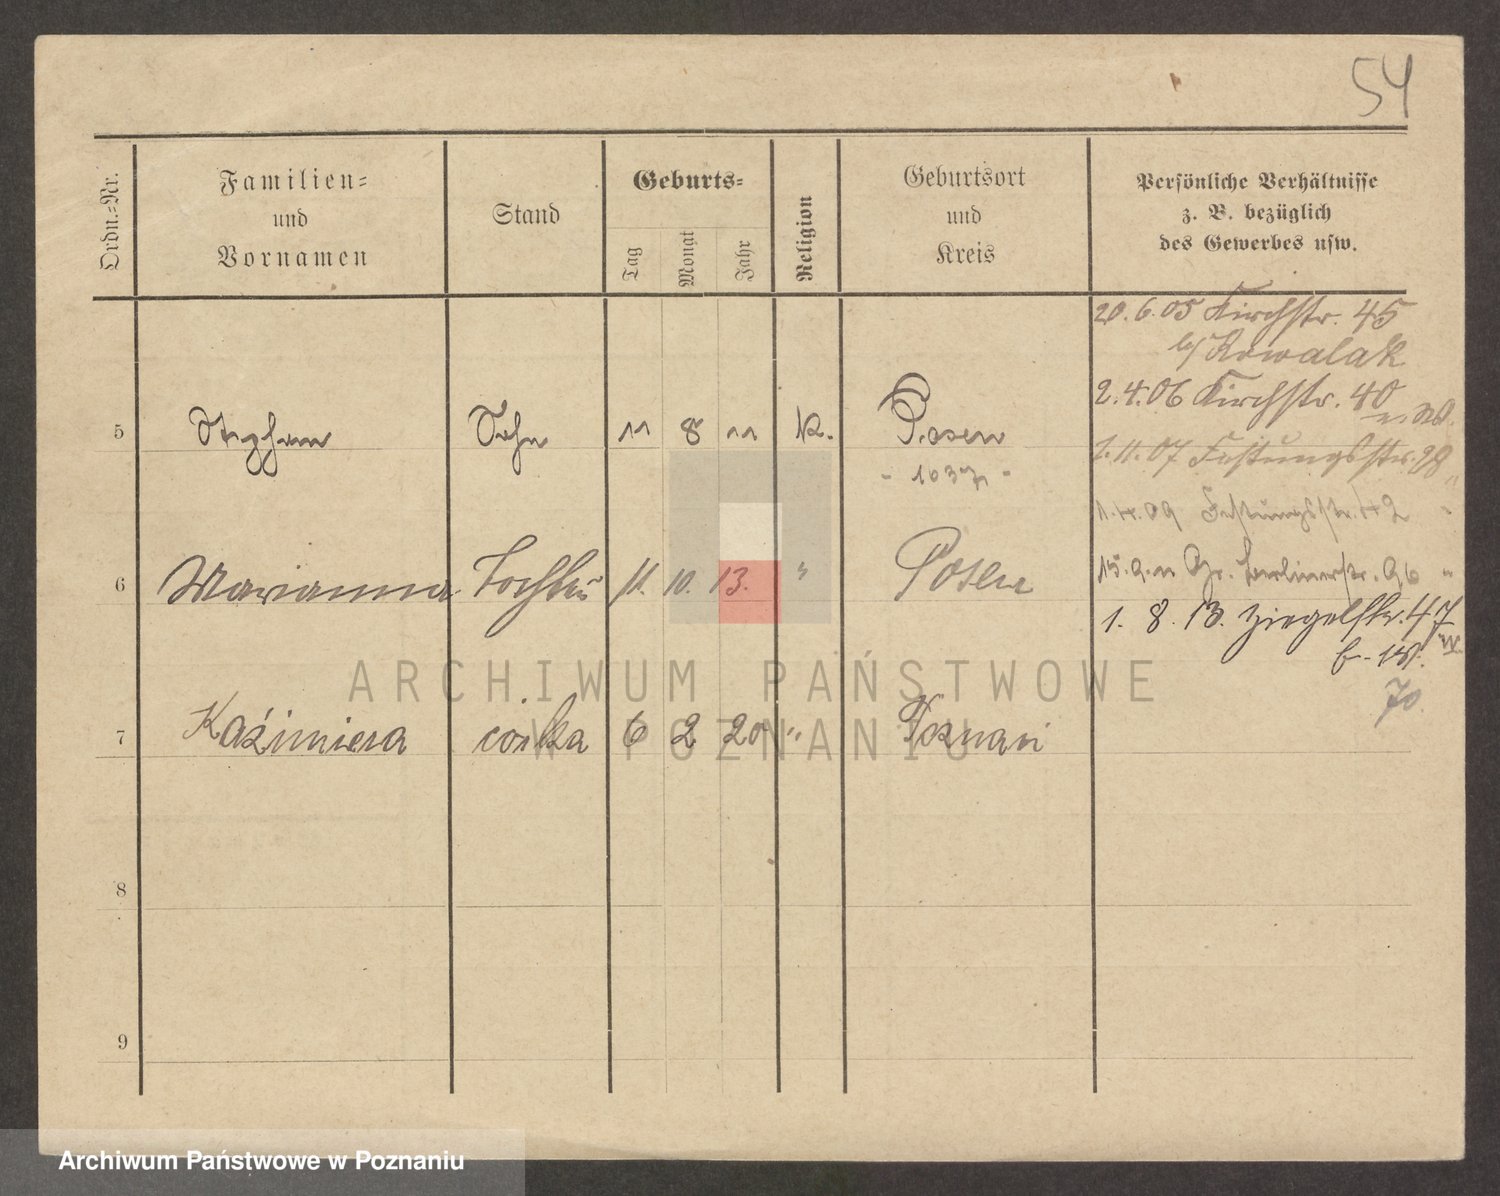 54
Ordn.-Nr.
Familien-
und
Vornamen
Stand
Geburts-
Tag
Monat
Jahr
Religion
Geburtsort
und
Kreis
Persönliche Verhältnisse
z. B. bezüglich
des Gewerbes usw.
20.6.05 Kirchstr. 45
b/ Kowalak
2.4.06 Kirchstr. 40
1.11.07 Festungsstr. 28
1.4.09 Festungsstr. 42
15.9.11 Gr. Berlinerstr. 96 "
1. 8. 13. Ziegelstr. 47
70
5 Stephan Sohn 11 8 11 K. Posen
- 1037 -
6 Marianna Tochter 11. 10. 13. " Posen
7 Kaźimiera córka 6 2 20 " Poznań
8
9
ARCHIWUM PAŃSTWOWE
W POZNANIU
Archiwum Państwowe w Poznaniu